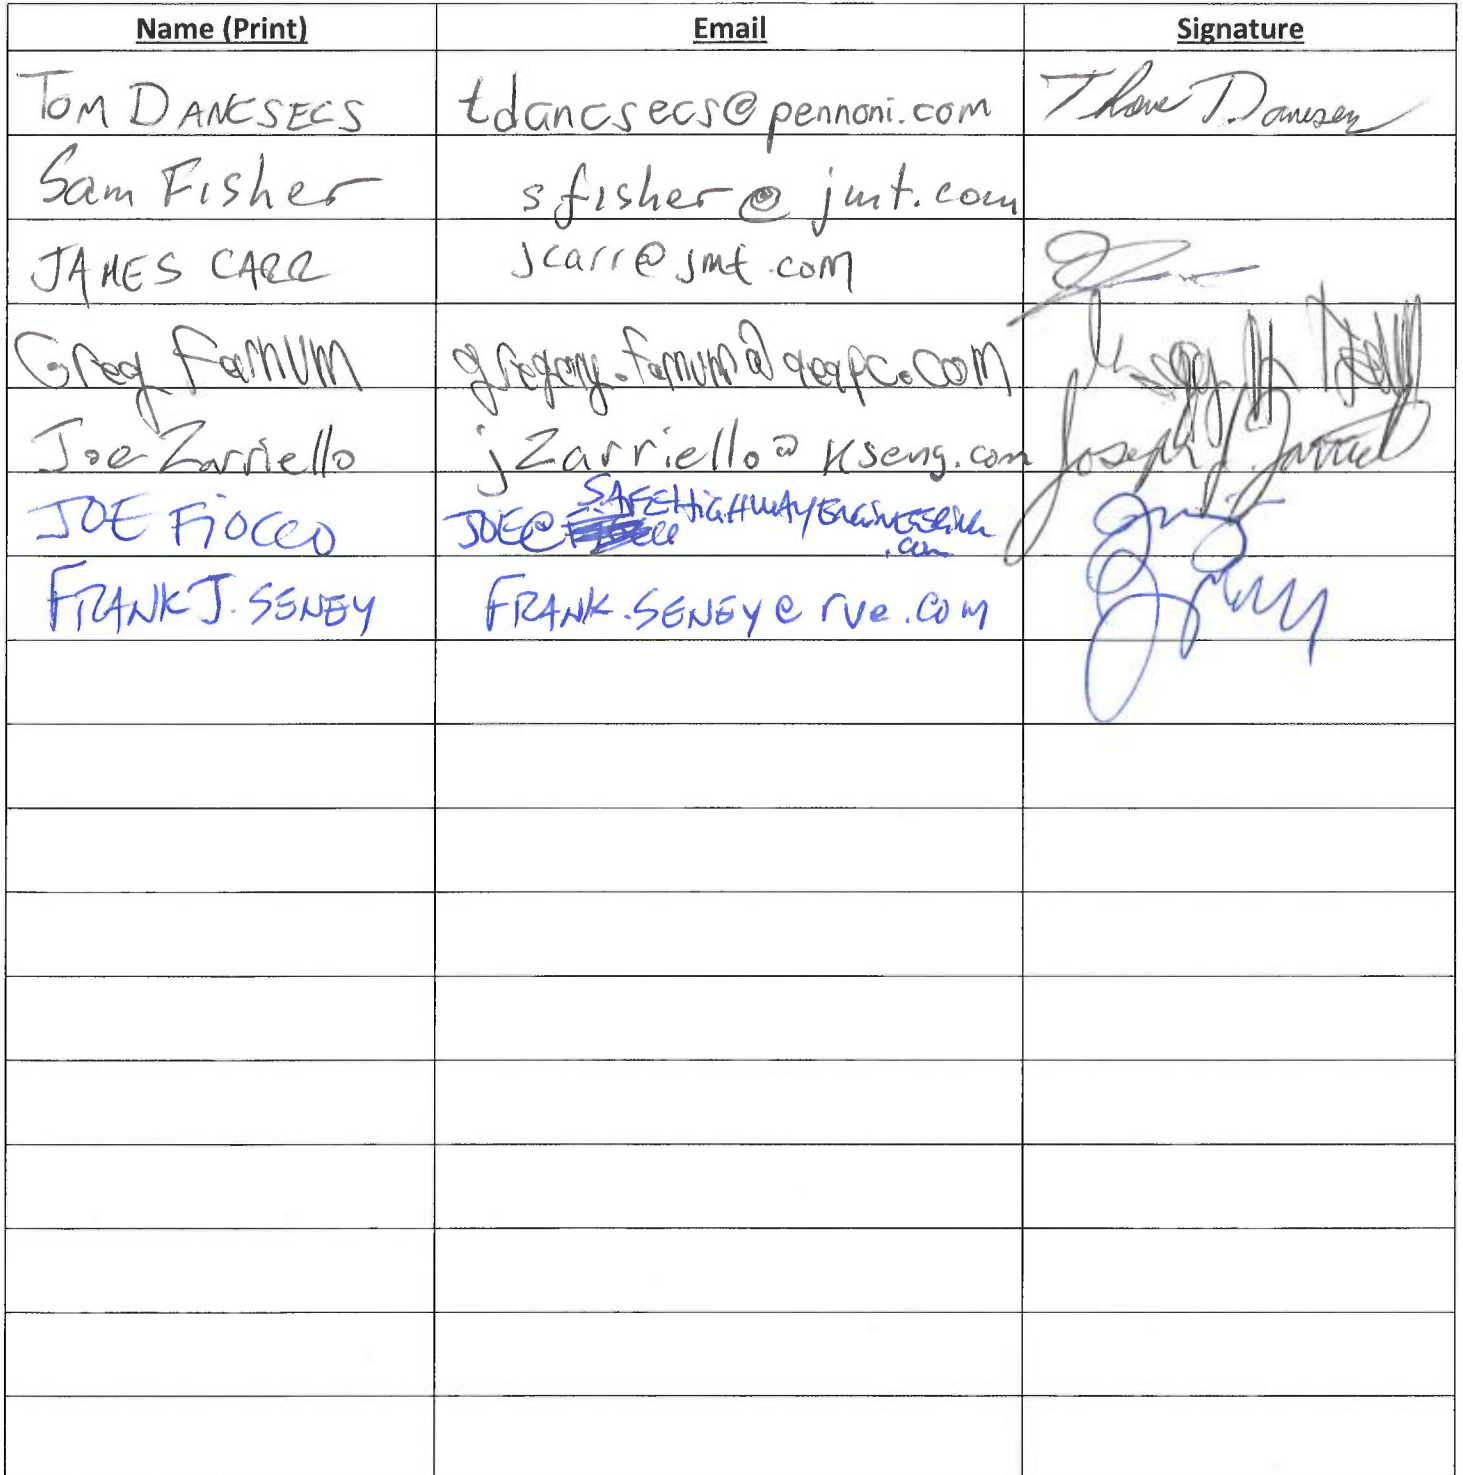 Name (Print) Email Signature
TOM DANCSECS tdancsecs@pennoni.com
Sam Fisher sfisher@jmt.com
JAMES CARR jcarr@jmt.com
Greg Farnum gregory.farnum@qeapc.com
Joe Zarriello jzarriello@kseng.com
JOE FIOCCO JOE@SAFEHIGHWAYENGINEERING
.com
FRANK J. SENEY FRANK.SENEY@rve.com